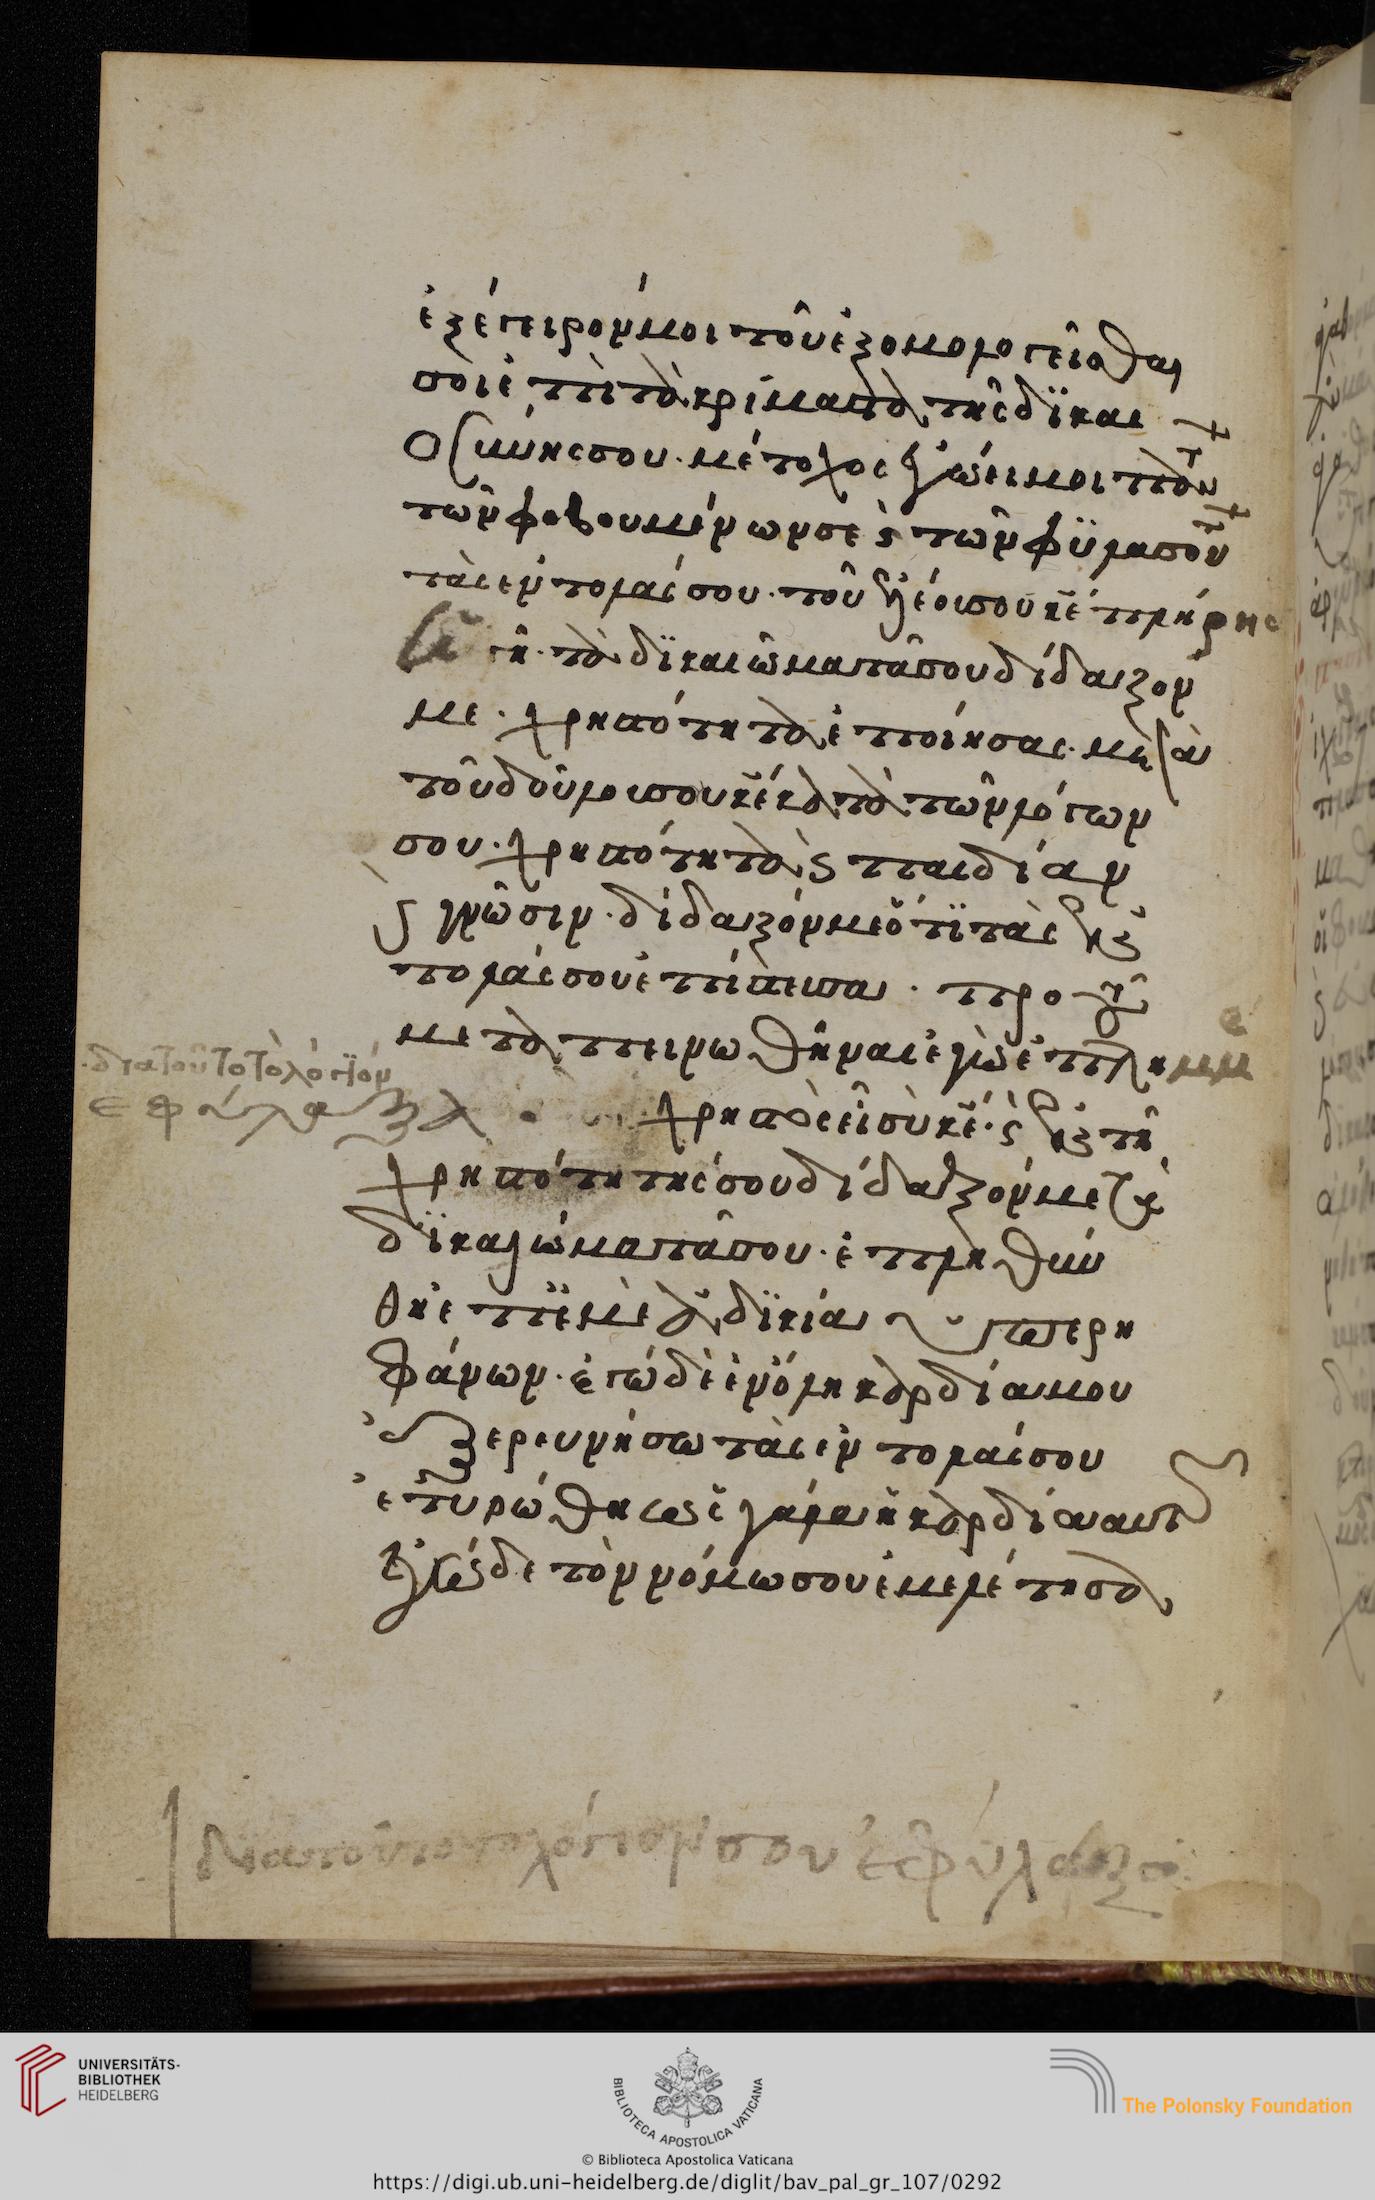 ἐξεγειρόμην τοῦ ἐξομολογεῖσθαι
σοι ἐπὶ τὰ κρίματα τῆς δϊκαι
οσύνης σου. μέτοχος ἐγώ εἰμι πάντων
τῶν φοβουμένων σε ϛ τῶν φϋλασσόντων
τὰς ἐντολάς σου. τοῦ ἐλέους σου κ̅ε̅ πλήρης
ἡ γῆ. τὰ δϊκαιώματά σου δίδαξον
με. χρηστότητα ἐποίησας μετὰ
τοῦ δούλου σου κ̅ε̅ κατὰ τὸν λόγον
σου. χρηστότητα ϛ παιδίαν
ϛ γνῶσιν. δίδαξόν με ὅτϊ ταῖς ἐν
τολαῖς σου ἐπίστευσα. πρὸ τοῦ
με ταπεινωθῆναι ἐγὼ ἐπλημμέ
διατοῦτο τὸ λόγϊόν
ἐφύλαξα
χρηστὸς εἶ σὺ κ̅ε̅. ϛ ἐν τῇ
χρηστότητί σου δίδαξόν με τὰ
δϊκαιώματά σου. ἐπληθύν
θη ἐπ' ἐμὲ ἀδϊκία ὑπερη
φάνων. ἐγὼ δὲ ἐν ὅλη καρδία μου
ἐξερευνήσω τὰς ἐντολάς σου
ἐτυρώθη ὡς γάλα ἡ καρδία αὐτῶν
ἐγὼ δὲ τὸν νόμον σου ἐμελέτησα
διατοῦτο τὸ λόγιόν σου ἐφύλαξα.
UNIVERSITÄTS-
BIBLIOTHEK
HEIDELBERG
BIBLIOTECA APOSTOLICA VATICANA
The Polonsky Foundation
© Biblioteca Apostolica Vaticana
https://digi.ub.uni-heidelberg.de/diglit/bav_pal_gr_107/0292